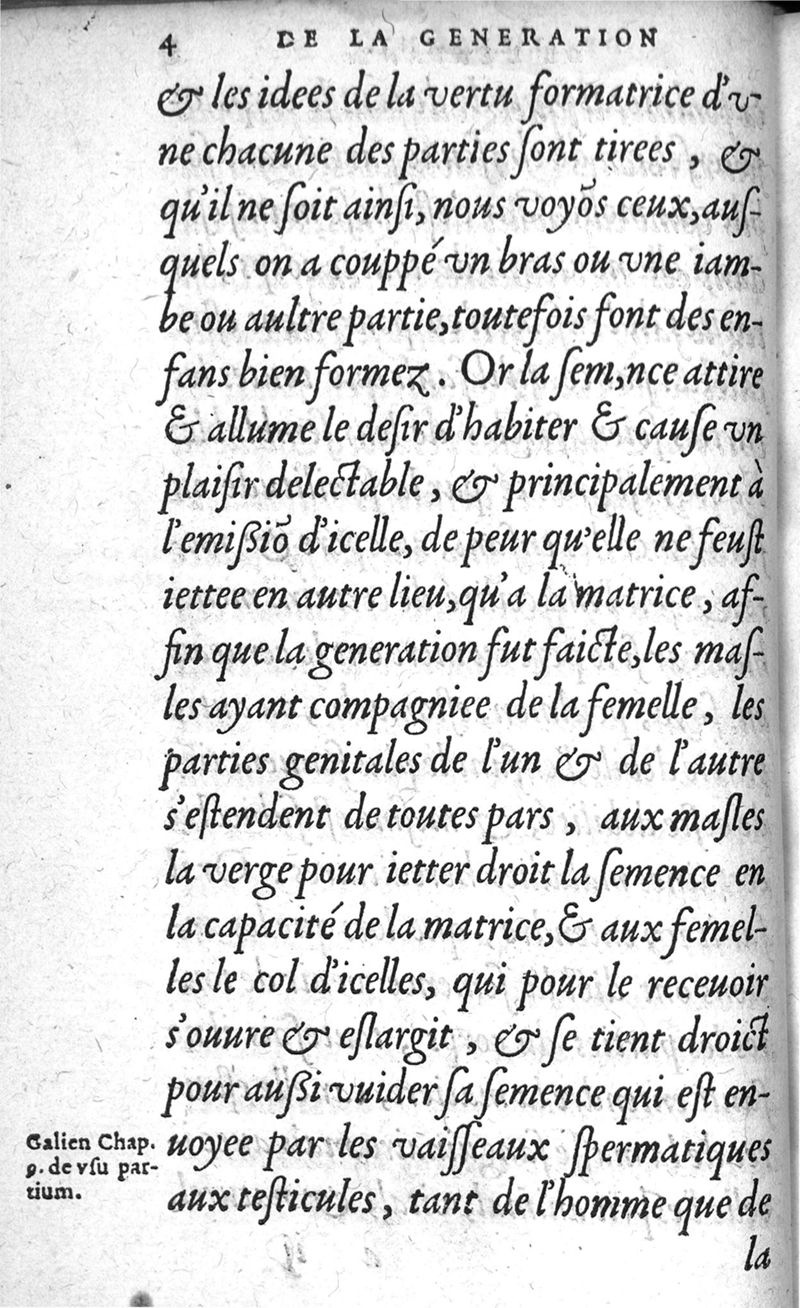 4 DE LA GENERATION
& les idees de la vertu formatrice d'v-
ne chacune des parties ſont tirees, &
qu'il ne ſoit ainſi, nous voyõs ceux, auſ-
quels on a couppé vn bras ou vne iam-
be ou aultre partie, toutefois font des en-
fans bien formez. Or la ſem,nce attire
& allume le deſir d'habiter & cauſe vn
plaiſir delectable, & principalement à
l'emiſsiõ d'icelle, de peur qu'elle ne feuſt
iettee en autre lieu, qu'a la matrice, af-
fin que la generation fut faicte, les maſ-
les ayant compagniee de la femelle, les
parties genitales de l'un & de l'autre
s'eſtendent de toutes pars, aux maſles
la verge pour ietter droit la ſemence en
la capacité de la matrice, & aux femel-
les le col d'icelles, qui pour le receuoir
s'ouure & eſlargit, & ſe tient droict
pour auſsi vuider ſa ſemence qui eſt en-
uoyee par les vaiſſeaux ſpermatiques
aux teſticules, tant de l'homme que de
la
Galien Chap.
9. de vſu par-
tium.